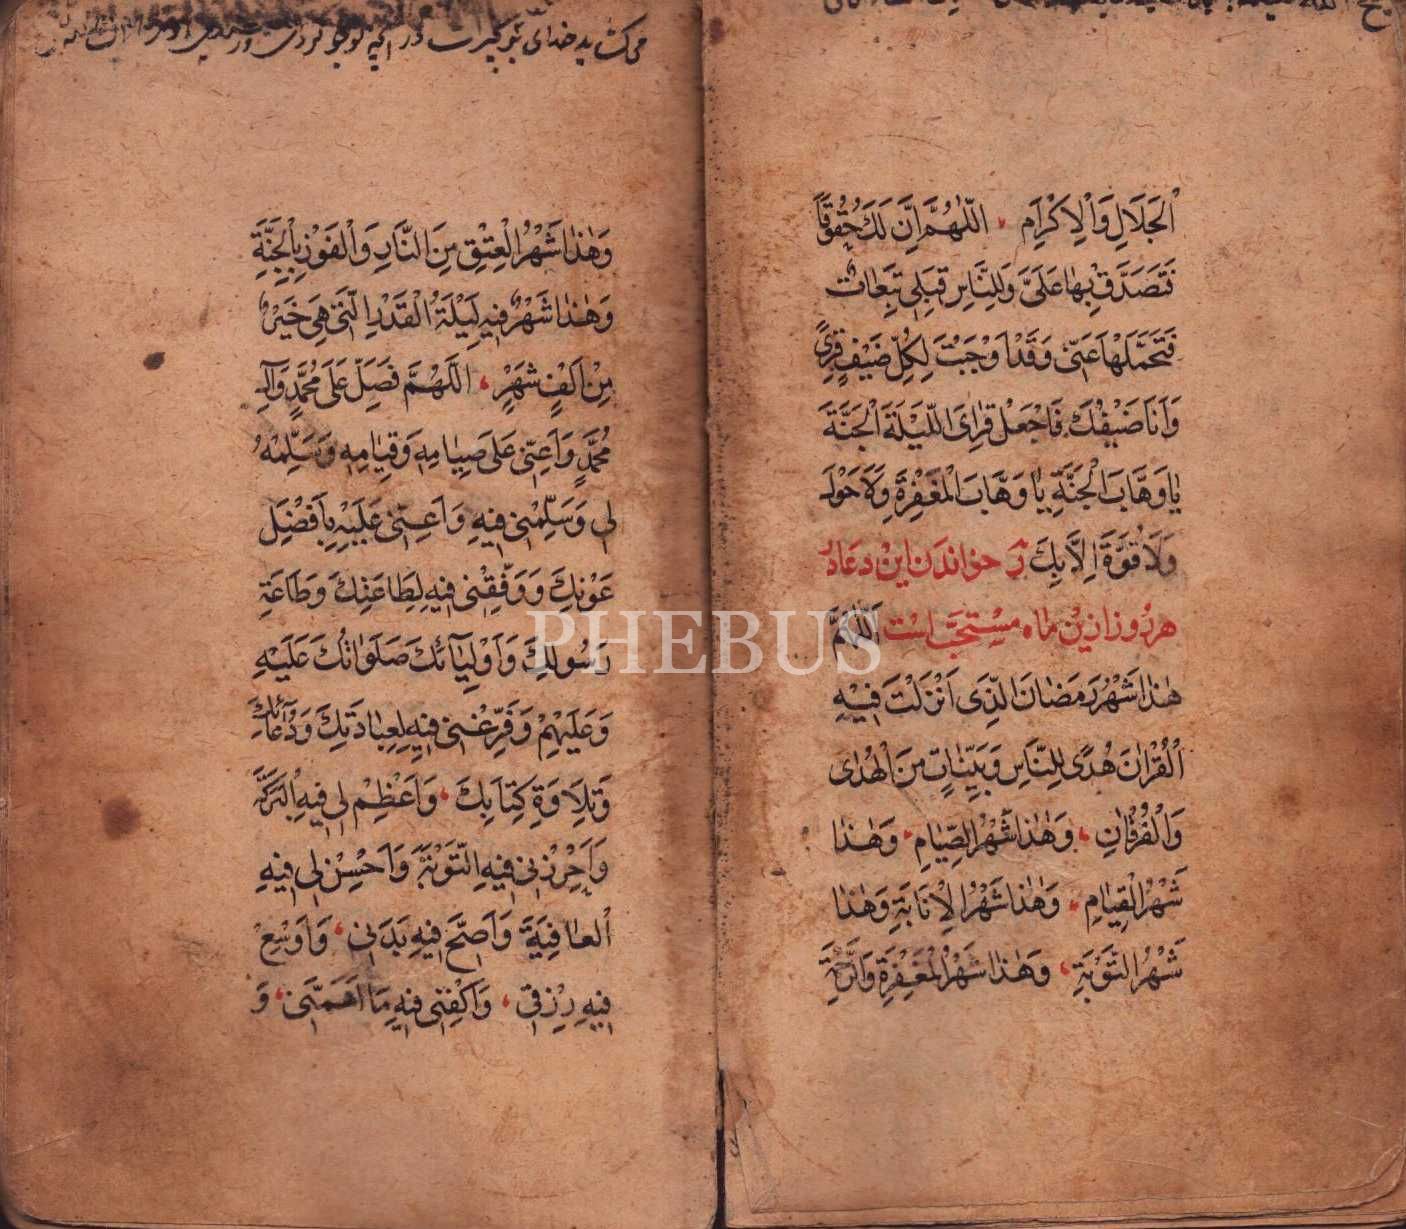 الْجَلَالِ وَالْاِكْرَامِ ، اللّٰهُمَّ اِنَّ لَكَ حُقُوقًا
فَتَصَدَّقْ بِهٰا عَلَىَّ وَلِلنَّاسِ قِبَلِى تَبِعٰاتٌ
فَتَحَمَّلْهٰا عَنّى وَقَدْ اَوْجَبْتَ لِكُلِّ ضَيْفٍ قِرًى
وَاَنَا ضَيْفُكَ فَاجْعَلْ قِرٰاىَ اللَّيْلَةَ الْجَنَّةَ
يٰا وَهَّابَ الْجَنَّةِ يٰا وَهَّابَ الْمَغْفِرَةِ وَلَا حَوْلَ
وَلَا قُوَّةَ اِلَّا بِكَ خواندن اين دعا در
هر روز ازين ماه مستحبّ است اَللّٰهُمَّ
هٰذٰا شَهْرُ رَمَضٰانَ الَّذِى اَنْزَلْتَ فيهِ
الْقُرْاٰنَ هُدًى لِلنَّاسِ وَبَيِّنٰاتٍ مِنَ الْهُدٰى
وَالْفُرْقٰانِ ، وَهٰذٰا شَهْرُ الصِّيٰامِ ، وَهٰذٰا
شَهْرُ الْقِيٰامِ ، وَهٰذٰا شَهْرُ الْاِنٰابَةِ وَهٰذٰا
شَهْرُ التَّوْبَةِ ، وَهٰذٰا شَهْرُ الْمَغْفِرَةِ وَالرَّحْمَةِ
وَهٰذٰا شَهْرُ الْعِتْقِ مِنَ النَّارِ وَالْفَوْزِ بِالْجَنَّةِ
وَهٰذٰا شَهْرٌ فيهِ لَيْلَةُ الْقَدْرِ الَّتى هِىَ خَيْرٌ
مِنْ اَلْفِ شَهْرٍ ، اَللّٰهُمَّ فَصَلِّ عَلَى مُحَمَّدٍ وَاٰلِ
مُحَمَّدٍ وَاَعِنّى عَلَى صِيٰامِهِ وَقِيٰامِهِ وَسَلِّمْهُ
لى وَسَلِّمْنى فيهِ وَاَعِنّى عَلَيْهِ بِاَفْضَلِ
عَوْنِكَ وَوَفِّقْنى فيهِ لِطَاعَتِكَ وَطَاعَةِ
رَسُولِكَ وَاَوْلِيٰآئِكَ صَلَوٰاتُكَ عَلَيْهِ
وَعَلَيْهِمْ وَفَرِّغْنى فيهِ لِعِبٰادَتِكَ وَدُعٰآئِكَ
وَتِلَاوَةِ كِتٰابِكَ ، وَاَعْظِمْ لى فيهِ الْبَرَكَةَ
وَاَحْرِزْ لى فيهِ التَّوْبَةَ وَاَحْسِنْ لى فيهِ
الْعٰافِيَةَ وَاَصِحَّ فيهِ بَدَنى ، وَاَوْسِعْ
فيهِ رِزْقى ، وَاكْفِنى فيهِ مَا اَهَمَّنى ، وَ
PHEBUS